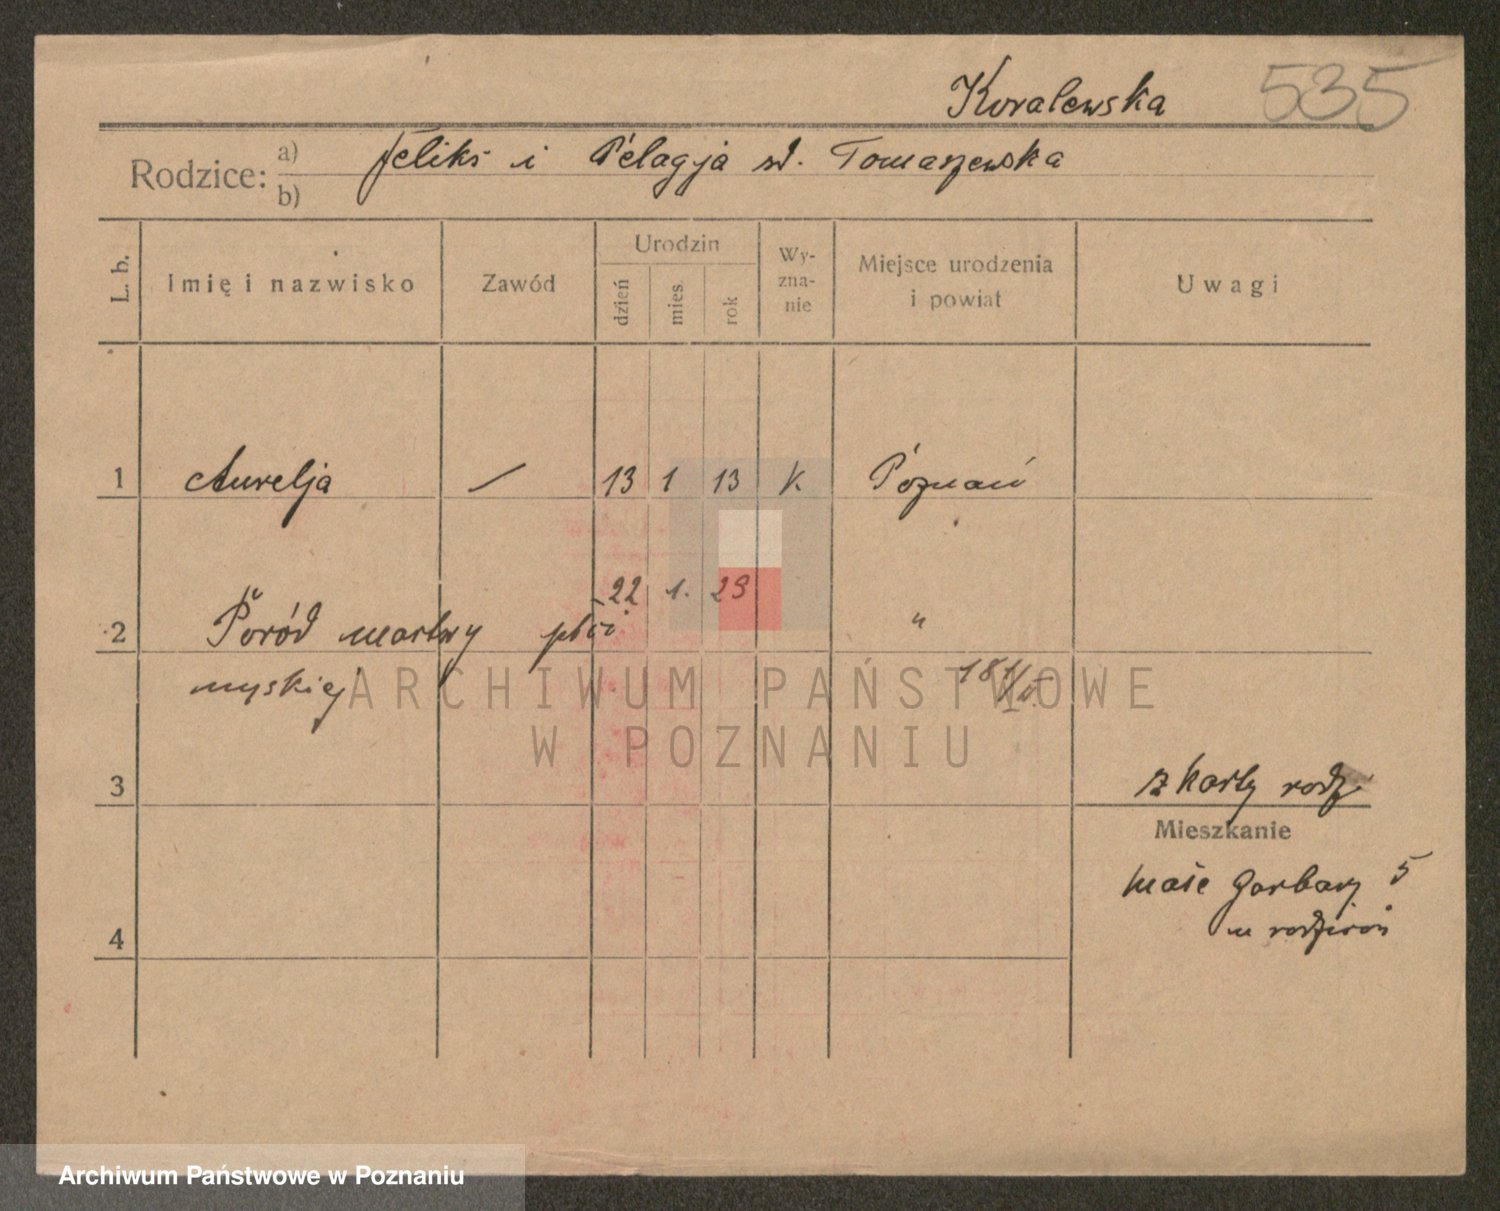 Kowalewska 535
Rodzice: a) Feliks i Pelagja zd. Tomaszewska
b)
L. b. Imię i nazwisko Zawód Urodzin dzień mies. rok Wyzna-nie Miejsce urodzenia i powiat Uwagi
1 Aurelja — 13 1 13 k Poznań
2 Poród martwy płci 22 1. 29 "
męskiej
ARCHIWUM PAŃSTWOWE
W POZNANIU
3 z karty rodz.
Mieszkanie
Małe Garbary 5
u rodziców
4
Archiwum Państwowe w Poznaniu